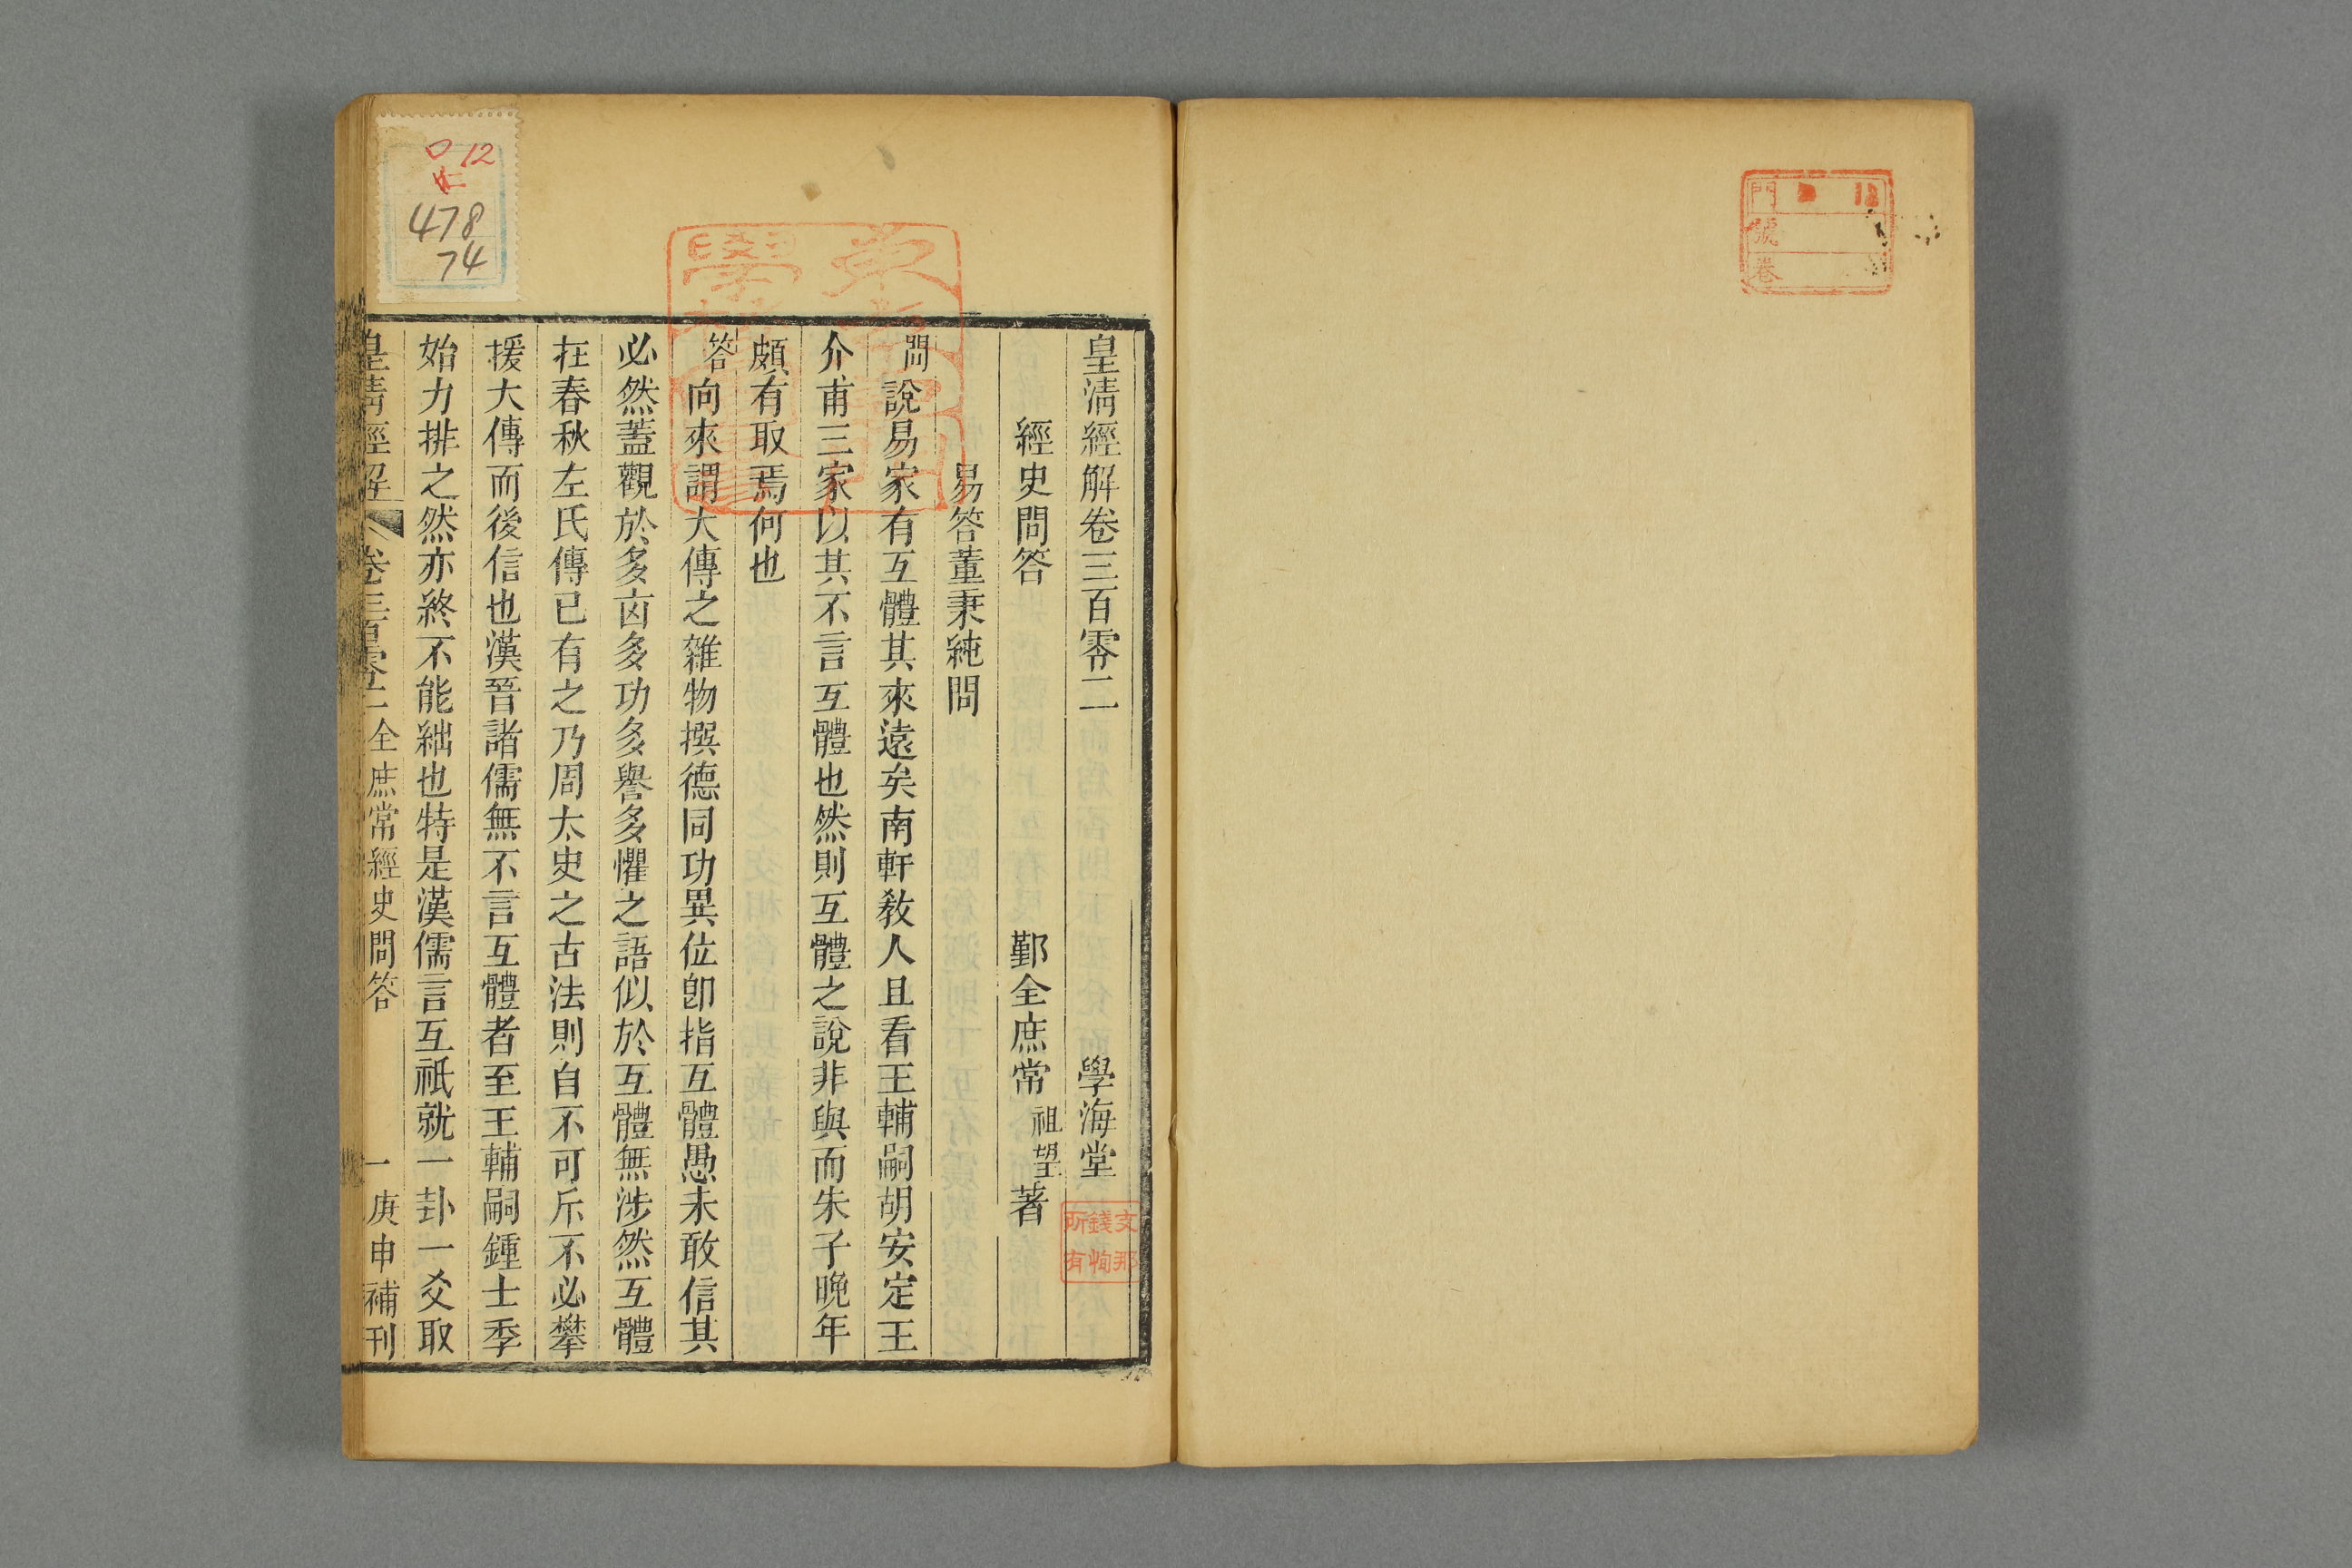 門 ロ 12
號
卷
皇清經解卷三百零二 學海堂
支那
錢恂
所有
經史問答 鄞全庶常祖望著
易答董秉純問
問說易家有互體其來遠矣南軒敎人且看王輔嗣胡安定王
介甫三家以其不言互體也然則互體之說非與而朱子晚年
頗有取焉何也
答向來謂大傳之雜物撰德同功異位卽指互體愚未敢信其
必然蓋觀於多凶多功多譽多懼之語似於互體無涉然互體
在春秋左氏傳已有之乃周太史之古法則自不可斥不必攀
援大傳而後信也漢晉諸儒無不言互體者至王輔嗣鍾士季
始力排之然亦終不能絀也特是漢儒言互祇就一卦一爻取
皇清經解 卷三百零二 全庶常經史問答 一 庚申補刊
ロ 12
478
74